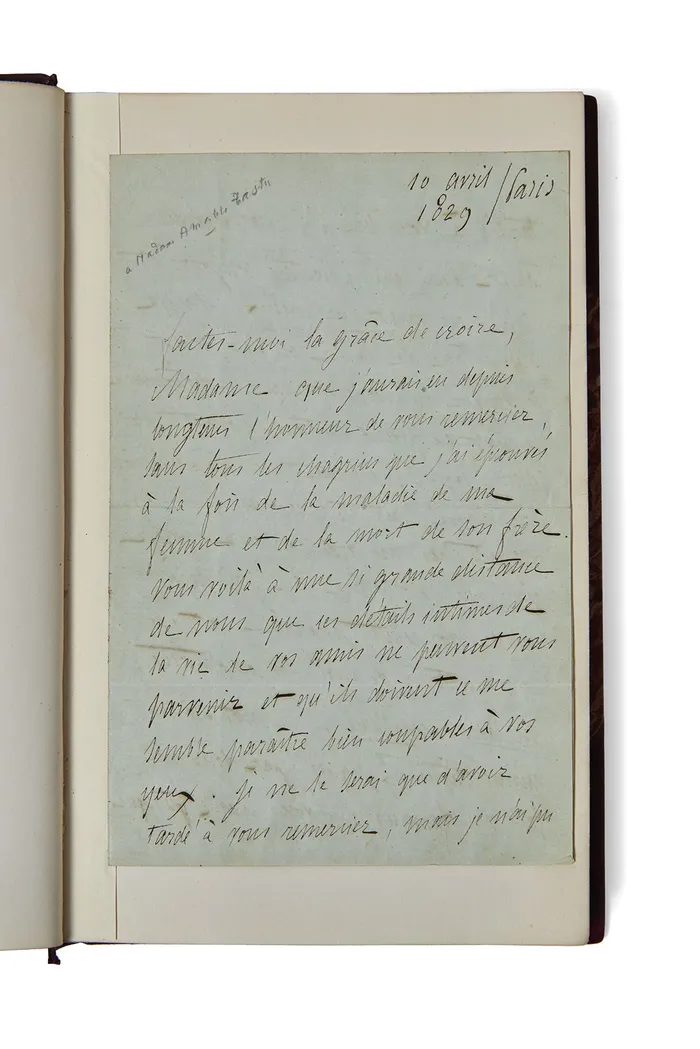 10 avril / Paris
1829
a Madame Amable Tastu
faites-moi la grâce de croire,
Madame que j'aurais eu depuis
longtems l'honneur de vous remercier,
sans tous les chagrins que j'ai éprouvés
à la fois de la maladie de ma
femme et de la mort de son frère.
Vous voilà à une si grande distance
de nous que ces détails intimes de
la vie de vos amis ne peuvent vous
parvenir et qu'ils doivent ce me
semble paraître bien coupables à vos
yeux. je ne le serai que d'avoir
tardé à vous remercier, mais je n'ai pu